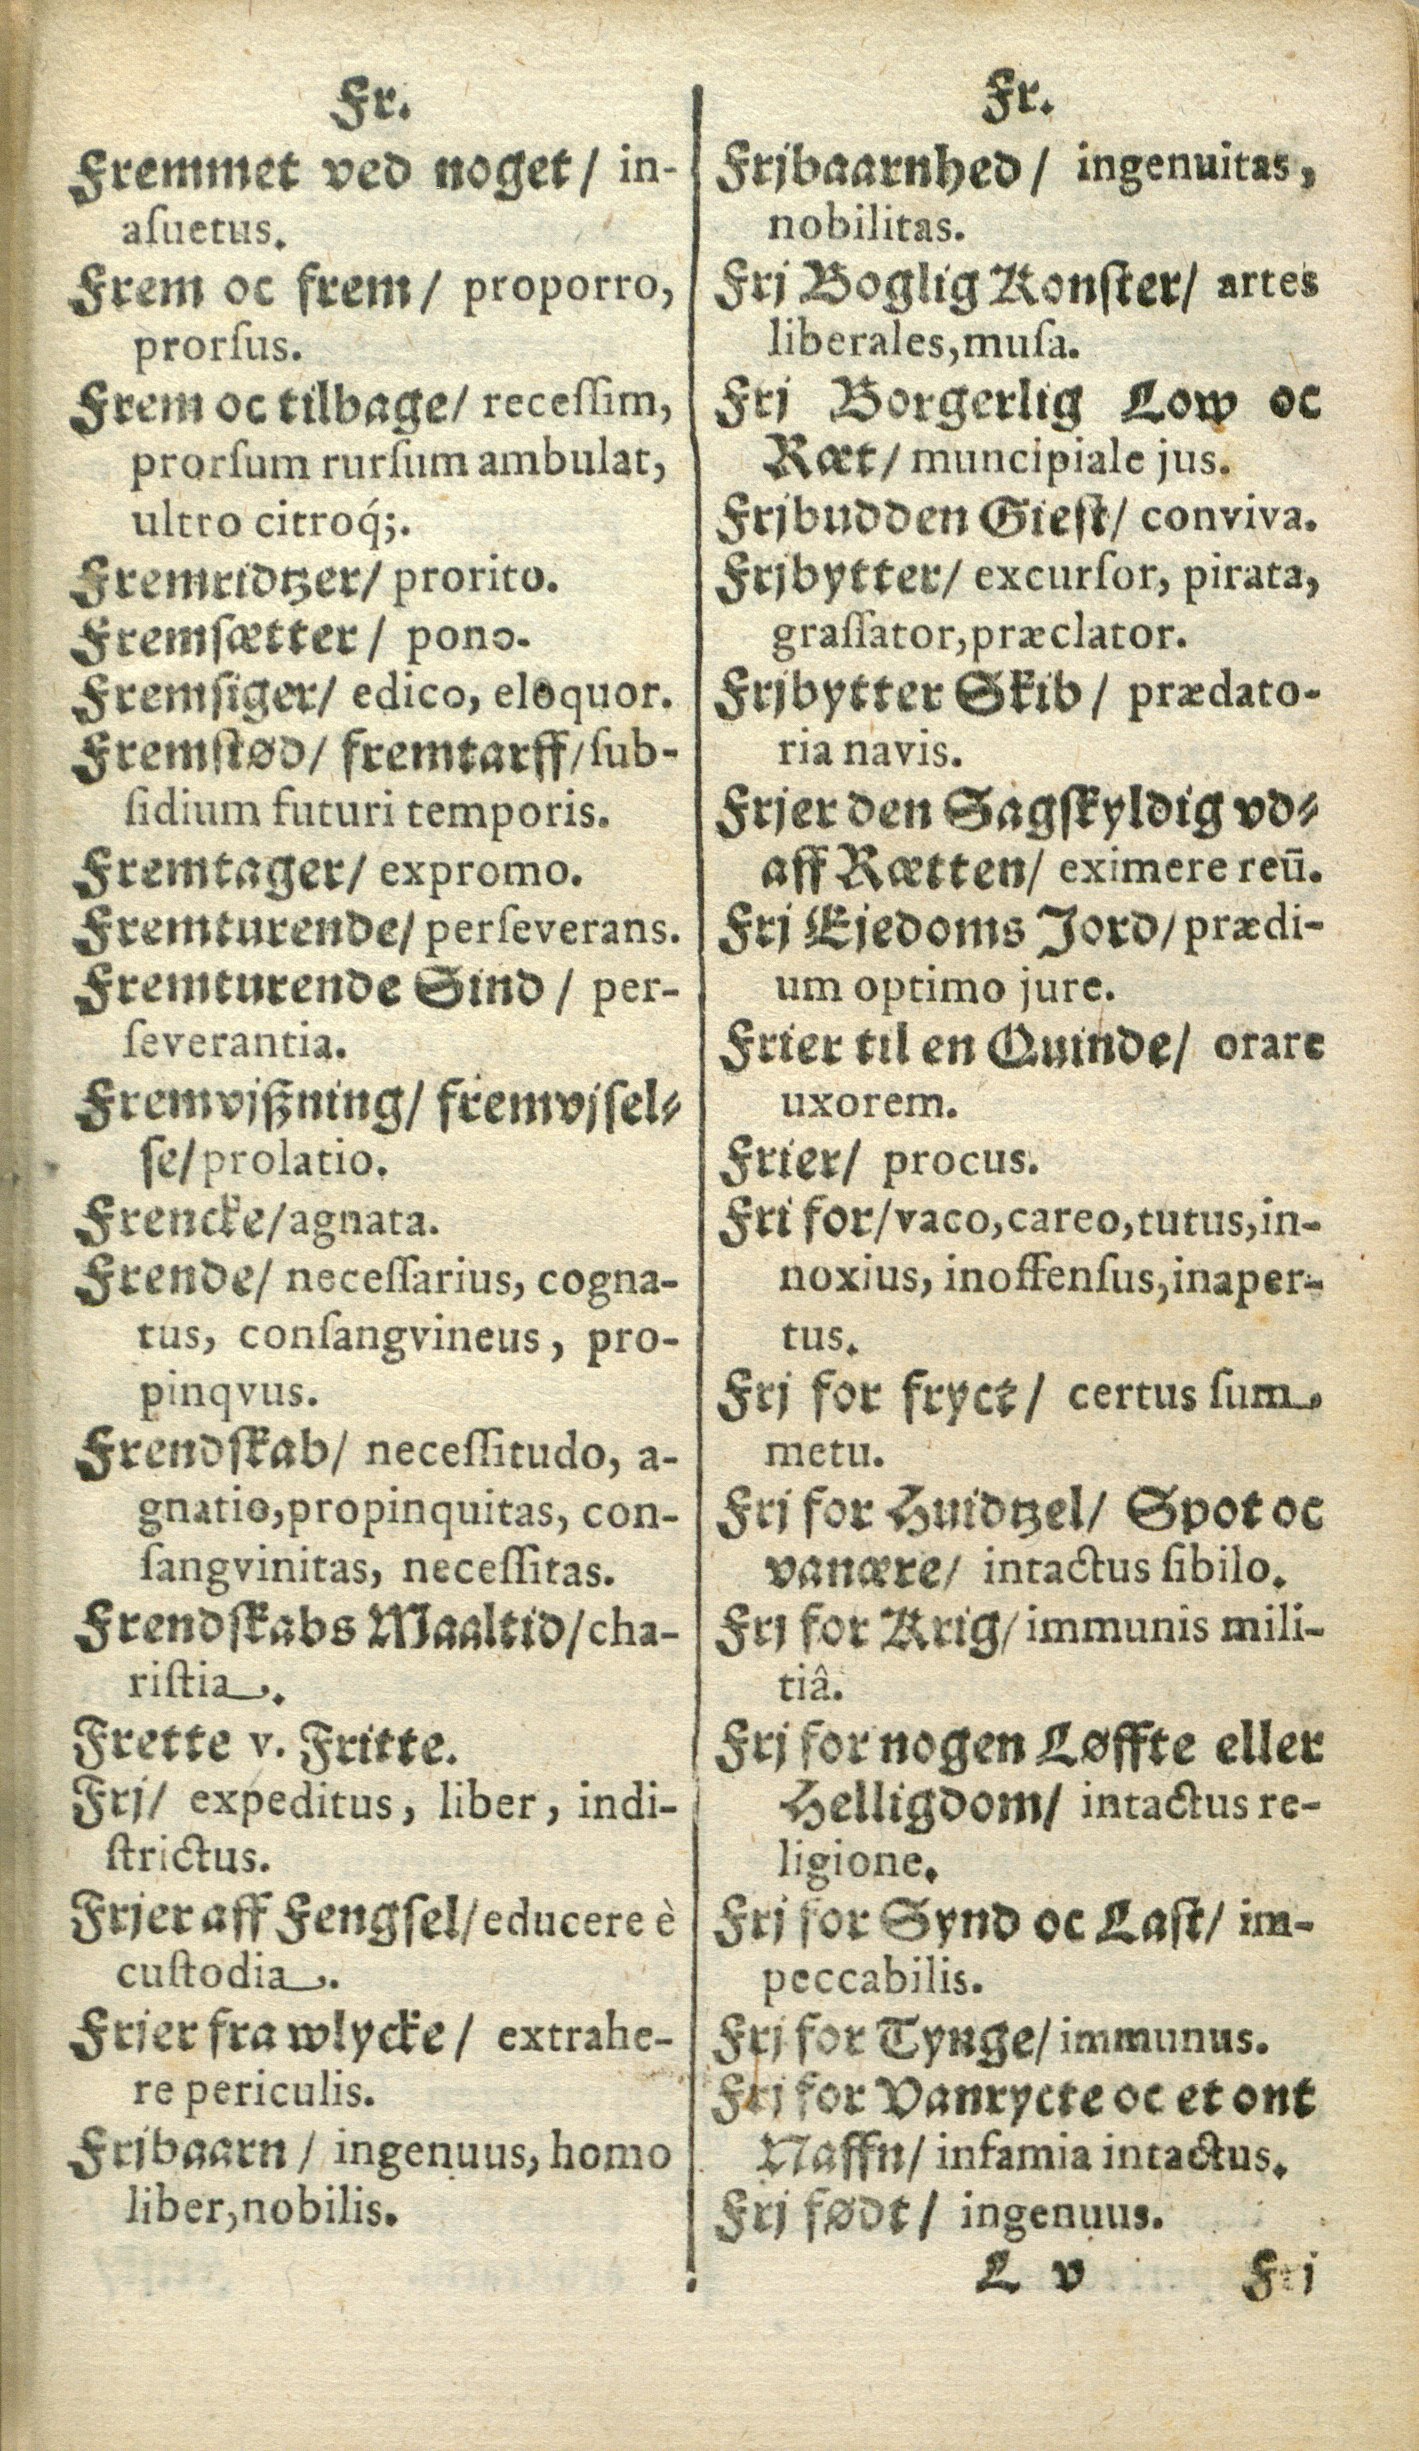 Fr.
Fremmet ved noget/ in-
aſuetus.
Frem oc frem/ proporro,
prorſus.
Frem oc tilbage/ receſſim,
prorſum rurſum ambulat,
ultro citroq́;.
Fremridtzer/ prorito.
Fremſætter/ pono.
Fremſiger/ edico, eloquor.
Fremſtød/ fremtarff/ ſub-
ſidium futuri temporis.
Fremtager/ expromo.
Fremturende/ perſeverans.
Fremturende Sind/ per-
ſeverantia.
Fremvjßning/ fremvjſel-
ſe/ prolatio.
Frencke/ agnata.
Frende/ neceſſarius, cogna-
tus, conſangvineus, pro-
pinqvus.
Frendſkab/ neceſſitudo, a-
gnatio, propinquitas, con-
ſangvinitas, neceſſitas.
Frendſkabs Maaltid/ cha-
riſtia.
Frette v. Fritte.
Frj/ expeditus, liber, indi-
ſtrictus.
Frjer aff Fengſel/ educere è
cuſtodia.
Frjer fra wlycke/ extrahe-
re periculis.
Frjbaarn/ ingenuus, homo
liber, nobilis.
Fr.
Frjbaarnhed/ ingenuitas,
nobilitas.
Frj Boglig Konſter/ artes
liberales, muſa.
Frj Borgerlig Low oc
Ræt/ muncipiale jus.
Frjbudden Gieſt/ conviva.
Frjbytter/ excurſor, pirata,
graſſator, præclator.
Frjbytter Skib/ prædato-
ria navis.
Frjer den Sagſkyldig vd-
aff Rætten/ eximere reū.
Frj Ejedoms Jord/ prædi-
um optimo jure.
Frier til en Quinde/ orare
uxorem.
Frier/ procus.
Fri for/ vaco, careo, tutus, in-
noxius, inoffenſus, inaper-
tus.
Frj for fryct/ certus ſum
metu.
Frj for Huidtzel/ Spot oc
vanære/ intactus ſibilo.
Frj for Krig/ immunis mili-
tiâ.
Frj for nogen Løffte eller
Helligdom/ intactus re-
ligione.
Frj for Synd oc Laſt/ im-
peccabilis.
Frj for Tynge/ immunus.
Frj for Vanrycte oc et ont
Naffn/ infamia intactus.
Frj født/ ingenuus.
L v Frj